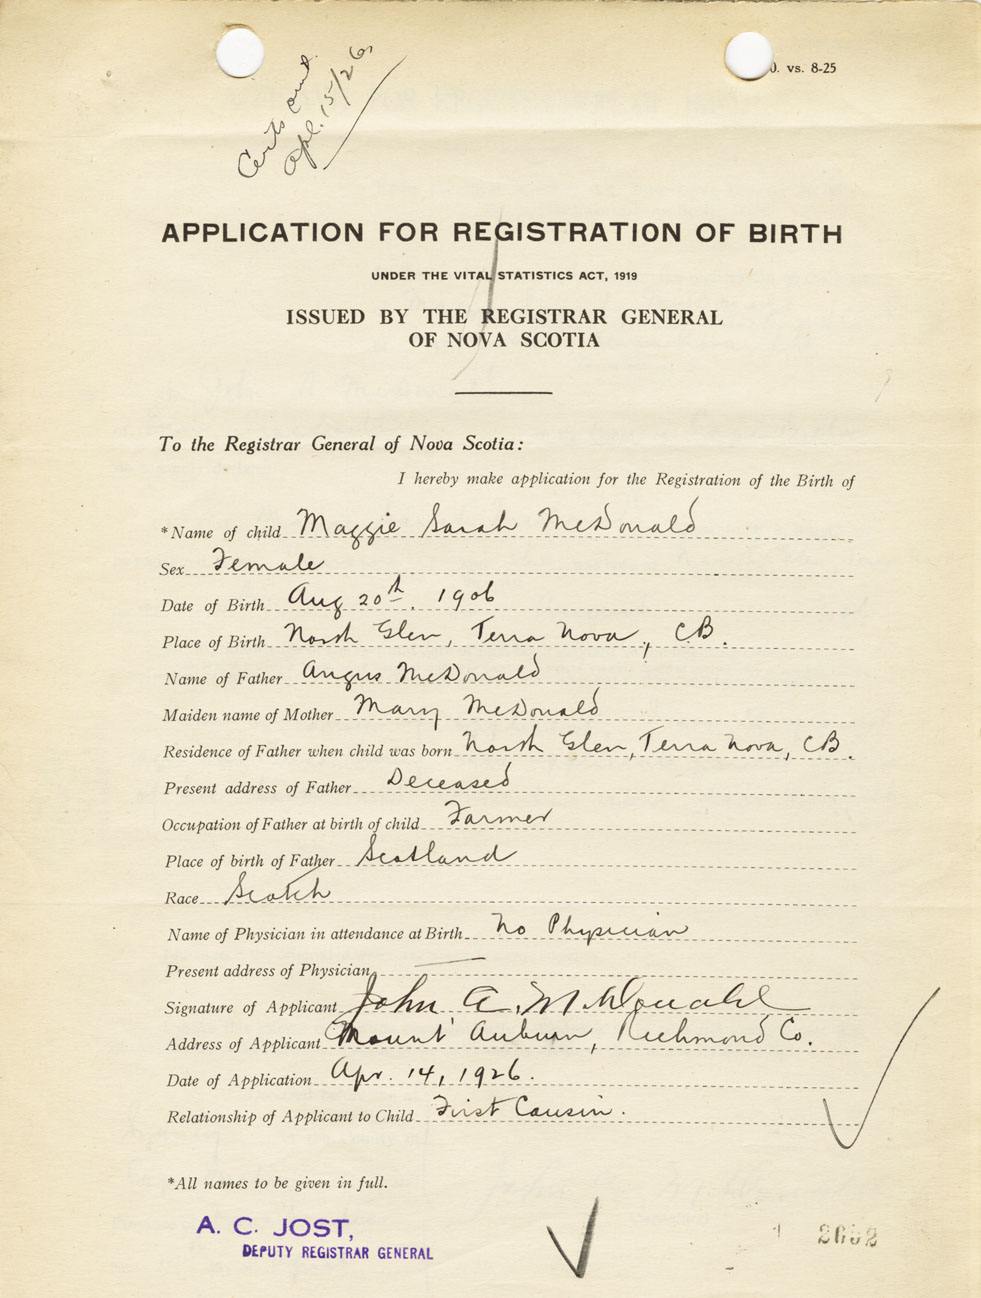 0. vs. 8-25
Certs
Apl. 15/26
APPLICATION FOR REGISTRATION OF BIRTH
UNDER THE VITAL STATISTICS ACT, 1919
ISSUED BY THE REGISTRAR GENERAL
OF NOVA SCOTIA
To the Registrar General of Nova Scotia:
I hereby make application for the Registration of the Birth of
*Name of child Maggie Sarah McDonald
Sex Female
Date of Birth Aug 20th. 1906
Place of Birth North Glen, Terra Nova, C.B.
Name of Father Angus McDonald
Maiden name of Mother Mary McDonald
Residence of Father when child was born North Glen, Terra Nova, C.B.
Present address of Father Deceased
Occupation of Father at birth of child Farmer
Place of birth of Father Scotland
Race Scotch
Name of Physician in attendance at Birth No Physician
Present address of Physician —
Signature of Applicant John A. McDonald
Address of Applicant Mount Auburn, Richmond Co.
Date of Application Apr. 14, 1926.
Relationship of Applicant to Child First Cousin.
*All names to be given in full.
A. C. JOST,
DEPUTY REGISTRAR GENERAL